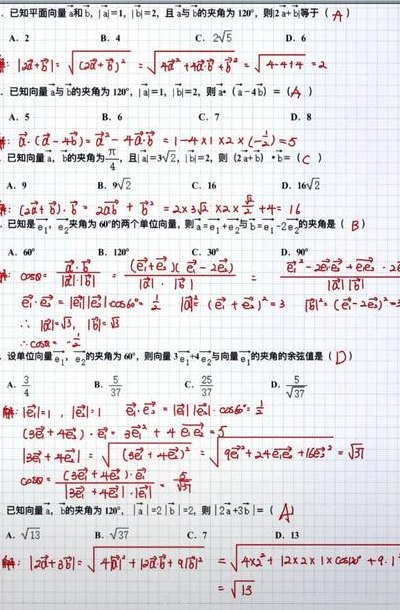 . 已知平面向量a⃗和b⃗, |a⃗|=1, |b⃗|=2, 且a⃗与b⃗的夹角为120°, 则|2a⃗+b⃗|等于 ( A )
A. 2 B. 4 C. 2√5 D. 6
|2a⃗+b⃗| = √(2a⃗+b⃗)² = √4a⃗²+4a⃗·b⃗+b⃗² = √4-4+4 = 2
. 已知向量a⃗与b⃗的夹角为120°, |a⃗|=1, |b⃗|=2, 则a⃗•(a⃗-4b⃗) = ( A )
A. 5 B. 6 C. 7 D. 8
: a⃗·(a⃗-4b⃗) = a⃗² - 4a⃗·b⃗ = 1-4×1×2×(-1/2) = 5
. 已知向量a⃗, b⃗的夹角为π/4, 且|a⃗|=3√2, |b⃗|=2, 则 (2a⃗+b⃗)•b⃗= ( C )
A. 9 B. 9√2 C. 16 D. 16√2
: (2a⃗+b⃗)·b⃗ = 2a⃗b⃗ + b⃗² = 2×3√2×2×√2/2+4 = 16
. 已知是e₁⃗, e₂⃗夹角为60°的两个单位向量, 则a⃗=e₁⃗+e₂⃗与b⃗=e₁⃗-2e₂⃗的夹角是 ( B )
A. 60° B. 120° C. 30° D. 90°
解: cosθ = a⃗·b⃗/|a⃗|·|b⃗| = (e₁⃗+e₂⃗)(e₁⃗-2e₂⃗)/|a⃗|·|b⃗| =
e₁⃗·e₂⃗ = |e₁⃗||e₂⃗|cos60° = 1/2 |a⃗|² = (e₁⃗+e₂⃗)² = 3 |b⃗|² = (e₁⃗-2e₂⃗)² = 3
∴ |a⃗|=√3, |b⃗|=√3
∴ cosθ = -1/2
. 设单位向量e₁⃗, e₂⃗的夹角为60°, 则向量3e₁⃗+4e₂⃗与向量e₁⃗的夹角的余弦值是 ( D )
A. 3/4 B. 5/37 C. 25/37 D. 5/√37
解: |e₁⃗|=1, |e₂⃗|=1 e₁⃗·e₂⃗ = |e₁⃗||e₂⃗|·cos60° = 1/2
(3e₁⃗+4e₂⃗)·e₁⃗ = 3e₁⃗² + 4e₁⃗e₂⃗ = 5
|3e₁⃗+4e₂⃗| = √(3e₁⃗+4e₂⃗)² = √9e₁⃗²+24e₁⃗e₂⃗+16e₂⃗² = √37
cosθ = (3e₁⃗+4e₂⃗)·e₁⃗/|3e₁⃗+4e₂⃗|·|e₁⃗| = 5/√37
已知向量a⃗, b⃗的夹角为120°, |a⃗|=2|b⃗|=2, 则|2a⃗+3b⃗|= ( A )
A. √13 B. √37 C. 7 D. 13
解: |2a⃗+3b⃗| = √4|a⃗|²+12a⃗·b⃗+9|b⃗|² = √4×2²+12×2×1×cos120°+9·1²
= √13